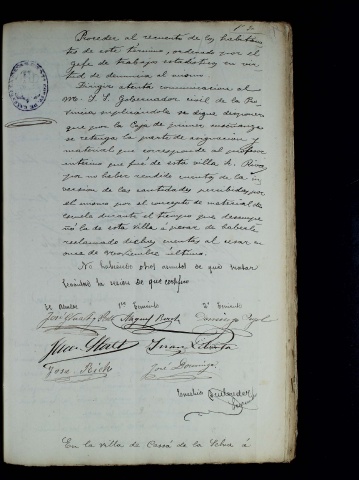 Proceder al recuento de los habitan-
tes de este término, ordenado por el
Gefe de trabajos estadisticos en vir-
tud de denuncia al mismo.
Dirigir atenta comunicacion al
S. S. Gobernador civil de la Pro-
vincia suplicándole se digne disponer
que por la Caja de primera enseñanza
se retenga la parte de asignacion y
material que corresponde al profesor
interino que fué de esta villa
por no haber rendido cuentas de la in-
version de las cantidades percibidas por
el mismo por el concepto de material de
escuela durante el tiempo que desempe-
ñó la de esta villa á pesar de haberle
reclamado dichas cuentas al cesar en
once de noviembre último.
No habiendo otros asuntos de que tratar
la sesion de que certifico
El Alcalde
José
Miguel
Domingo
Juan
José Rich
José Domingo
En la villa de Cassá de la Selva á